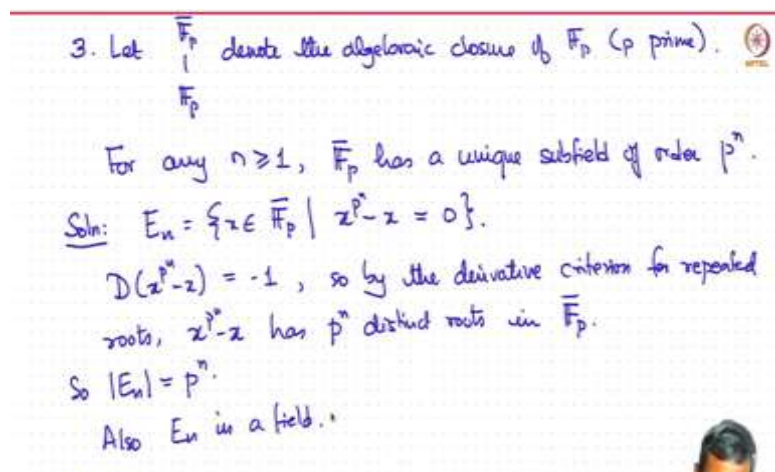 3. Let 𝔽̄_p denote the algebraic closure of 𝔽_p (p prime).
|
𝔽_p
For any n ≥ 1, 𝔽̄_p has a unique subfield of order pⁿ.
Soln: E_n = {x ∈ 𝔽̄_p | x^{pⁿ} - x = 0}.
D(x^{pⁿ} - x) = -1, so by the derivative criterion for repeated
roots, x^{pⁿ} - x has pⁿ distinct roots in 𝔽̄_p.
So |E_n| = pⁿ.
Also E_n is a field.
NPTEL